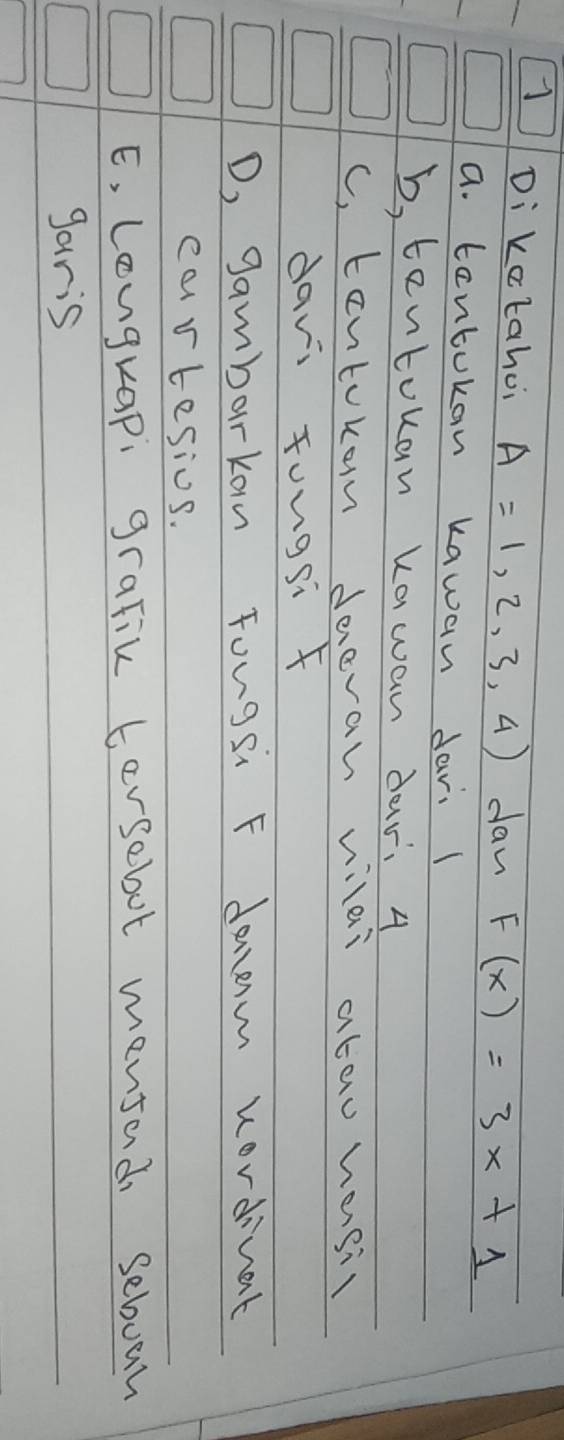 1 Diketahui A = 1, 2, 3, 4) dan F(x) = 3x + 1
a. tentukan kawan dari 1
b, tentukan kawan dari 4
C, tentukan daerah nilai atau hasil
dari fungsi f
D, gambarkan fungsi F dalam kordinat
cartesius.
E, Lengkapi grafik tersebut menjadi sebuah
garis